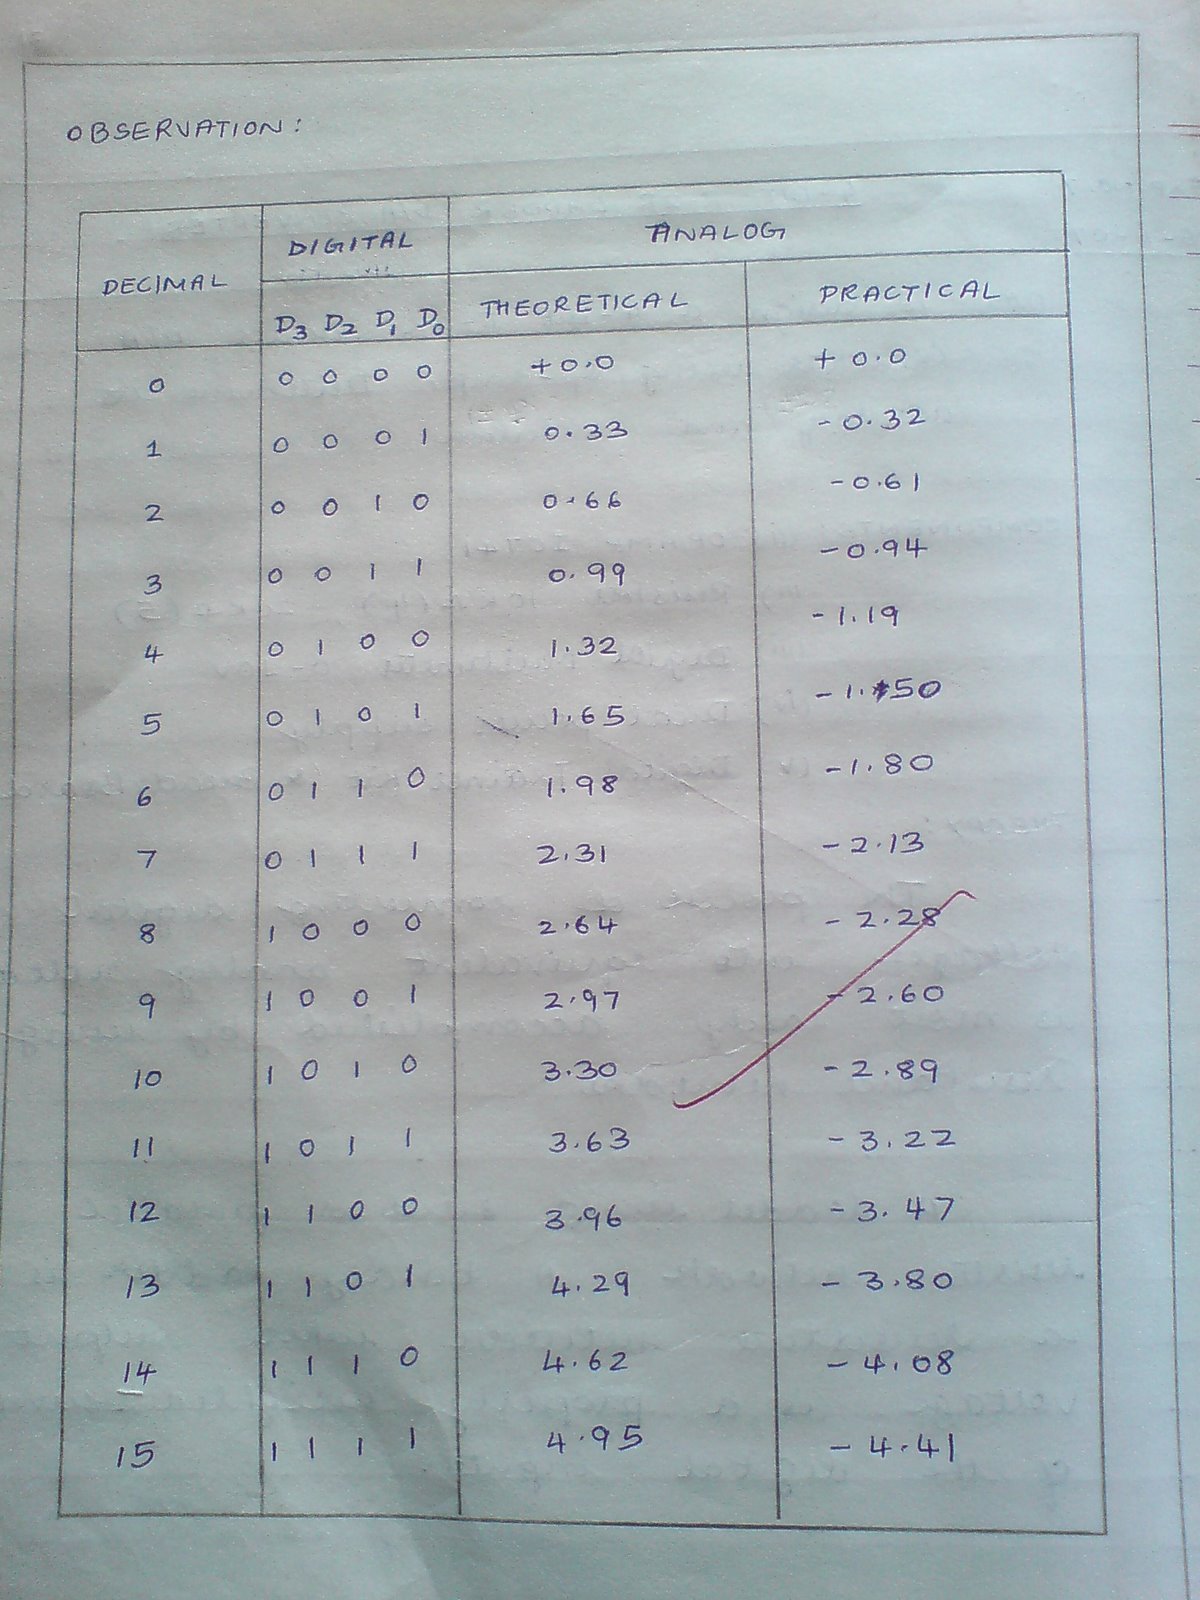 OBSERVATION:
DECIMAL DIGITAL ANALOG
D3 D2 D1 D0 THEORETICAL PRACTICAL
0 0 0 0 0 +0.0 +0.0
1 0 0 0 1 0.33 -0.32
2 0 0 1 0 0.66 -0.61
3 0 0 1 1 0.99 -0.94
4 0 1 0 0 1.32 -1.19
5 0 1 0 1 1.65 -1.50
6 0 1 1 0 1.98 -1.80
7 0 1 1 1 2.31 -2.13
8 1 0 0 0 2.64 -2.28
9 1 0 0 1 2.97 -2.60
10 1 0 1 0 3.30 -2.89
11 1 0 1 1 3.63 -3.22
12 1 1 0 0 3.96 -3.47
13 1 1 0 1 4.29 -3.80
14 1 1 1 0 4.62 -4.08
15 1 1 1 1 4.95 -4.41